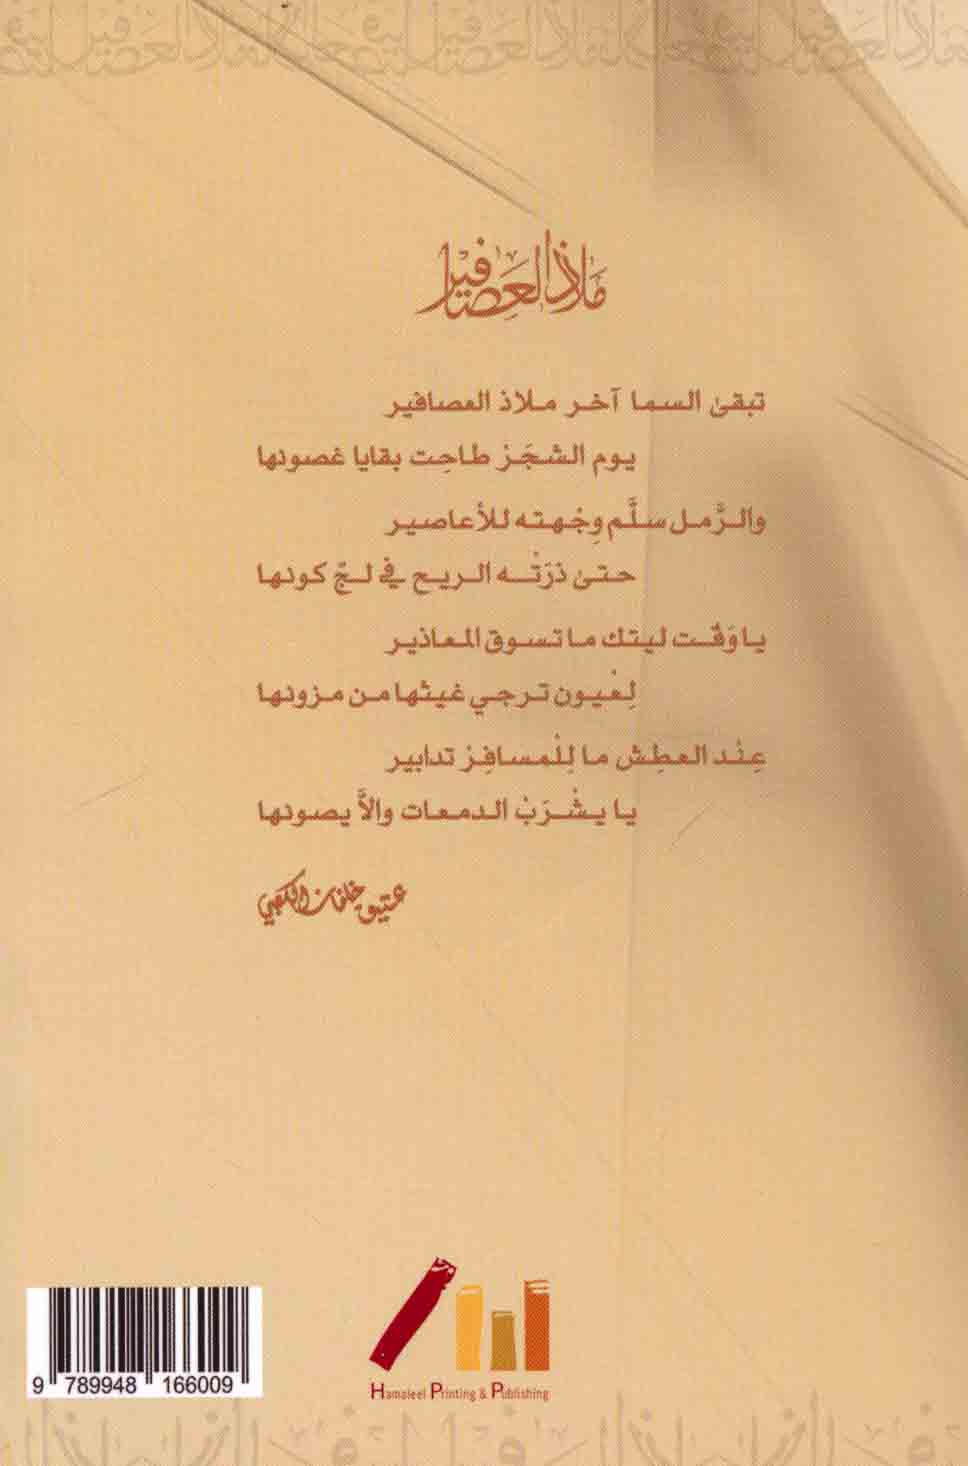 ملاذ العصافير
تبقىٰ السما آخر ملاذ العصافير
يوم الشجَرْ طاحِت بقايا غصونها
والرَّمل سلَّم وِجْهته للأعاصير
حتىٰ ذرَتْه الريح في لجّ كونها
يا وَقْت ليتك ما تسوق المعاذير
لِعْيون ترجي غيثها من مزونها
عِنْد العطِش ما لِلْمسافِرْ تدابير
يا يشْرَبْ الدمعات والاَّ يصونها
عتيق خلفان الكعبي
Hamaleel Printing & Publishing
9 789948 166009